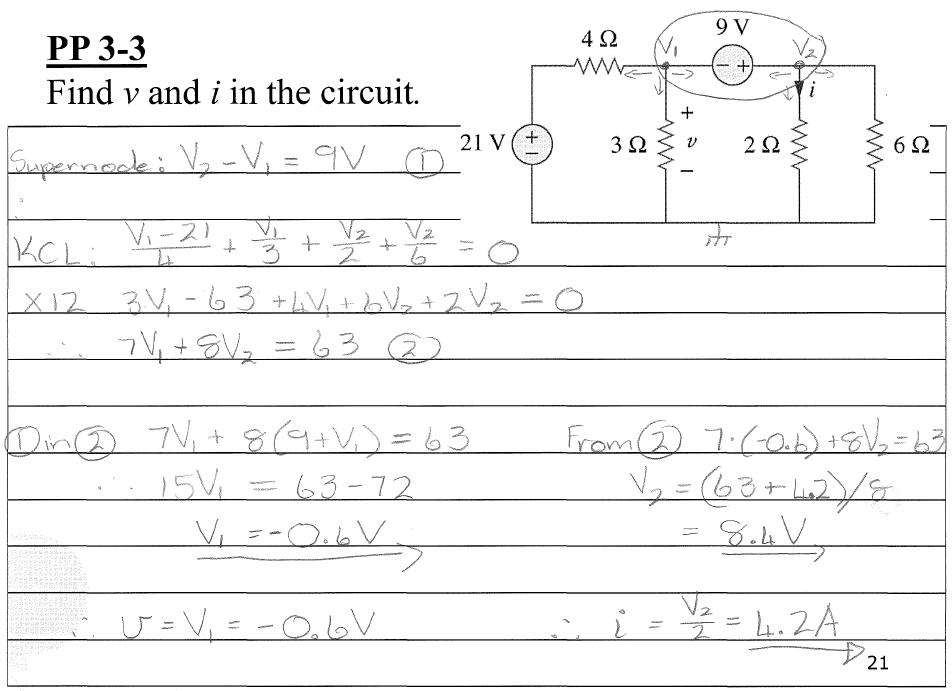 PP 3-3
Find v and i in the circuit.
4 Ω
V₁
9 V
− +
V₂
i
21 V
+
−
3 Ω
+
v
−
2 Ω
6 Ω
Supernode: V₂ - V₁ = 9V ①
KCL: (V₁ - 21)/4 + V₁/3 + V₂/2 + V₂/6 = 0
×12 3V₁ - 63 + 4V₁ + 6V₂ + 2V₂ = 0
∴ 7V₁ + 8V₂ = 63 ②
① in ② 7V₁ + 8(9+V₁) = 63
∴ 15V₁ = 63 - 72
V₁ = -0.6V
∴ v = V₁ = -0.6V
From ② 7·(-0.6) + 8V₂ = 63
V₂ = (63 + 4.2)/8
= 8.4V
∴ i = V₂/2 = 4.2A
21